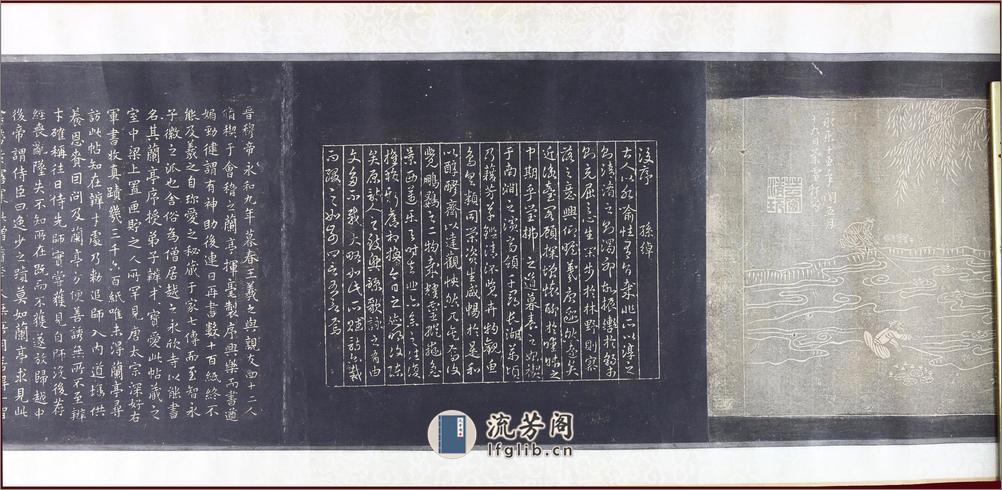 永樂十五年閏五月
十六日東書堂
後序　孫綽
古人以水喻性有旨哉非以渟之
則清混之則濁耶故振轡於朝市
則充屈之心生閑步於林野則寥
落之意興仰瞻羲唐邈然遠矣
近詠臺閣顧探增懷聊於曖昧之
中期乎瑩拂之道暮春之始禊
于南澗之濱高嶺千尋長湖萬頃
乃藉芳草鑑清流覽卉物觀魚
鳥具類同榮資生咸暢於是和
以醇醪齊以達觀快然兀矣焉復
覺鵬鷃之二物哉耀靈縱轡急
景西邁樂與時去悲亦系之往復
推移新舊相換今日之迹明復陳
矣原詩人之致興諒歌詠之有由
文多不載大略如此所賦詩亦裁
而綴之如前四言五言焉
晉穆帝永和九年暮春王羲之與親友四十二人
脩禊于會稽之蘭亭揮毫製序興樂而書遒
媚勁健謂有神助後連日再書數十百紙終不
能及羲之自珍愛之秘藏于家七傳而至智永
子徽之派也舍俗為僧居越之永欣寺以能書
名其蘭亭序授弟子辯才寶愛此帖藏之
室中梁上置匣貯之人罕見唐太宗深好右
軍書收真蹟幾三千六百紙唯未得蘭亭尋
訪此帖知在辯才處乃勅追師入內道場供
養恩賚回問及蘭亭方便善誘無所不至辯
才確稱往日侍先師實嘗獲見自師沒後荐
經喪亂墜失不知所在既而不獲遂放歸越中
後帝謂侍臣曰逸少之蹟莫如蘭亭求見此
流芳阁
lfglib.cn